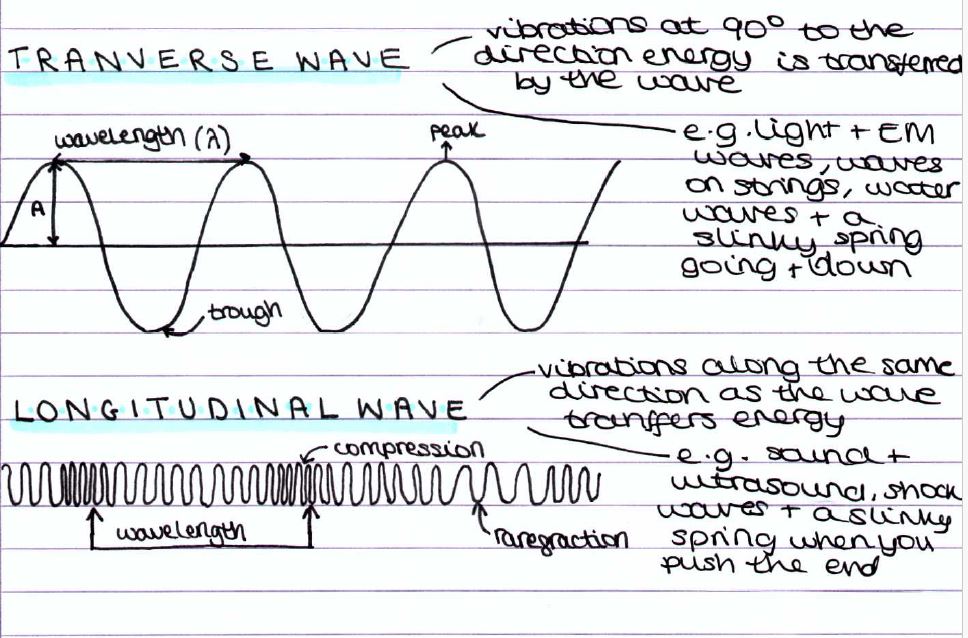 TRANVERSE WAVE
vibrations at 90° to the
direction energy is transferred
by the wave
wavelength (λ)
peak
A
trough
e.g. light + EM
waves, waves
on strings, water
waves + a
slinky spring
going + down
LONGITUDINAL WAVE
vibrations along the same
direction as the wave
tranffers energy
compression
wavelength
raregraction
e.g. sound +
ultrasound, shock
waves + a slinky
spring when you
push the end